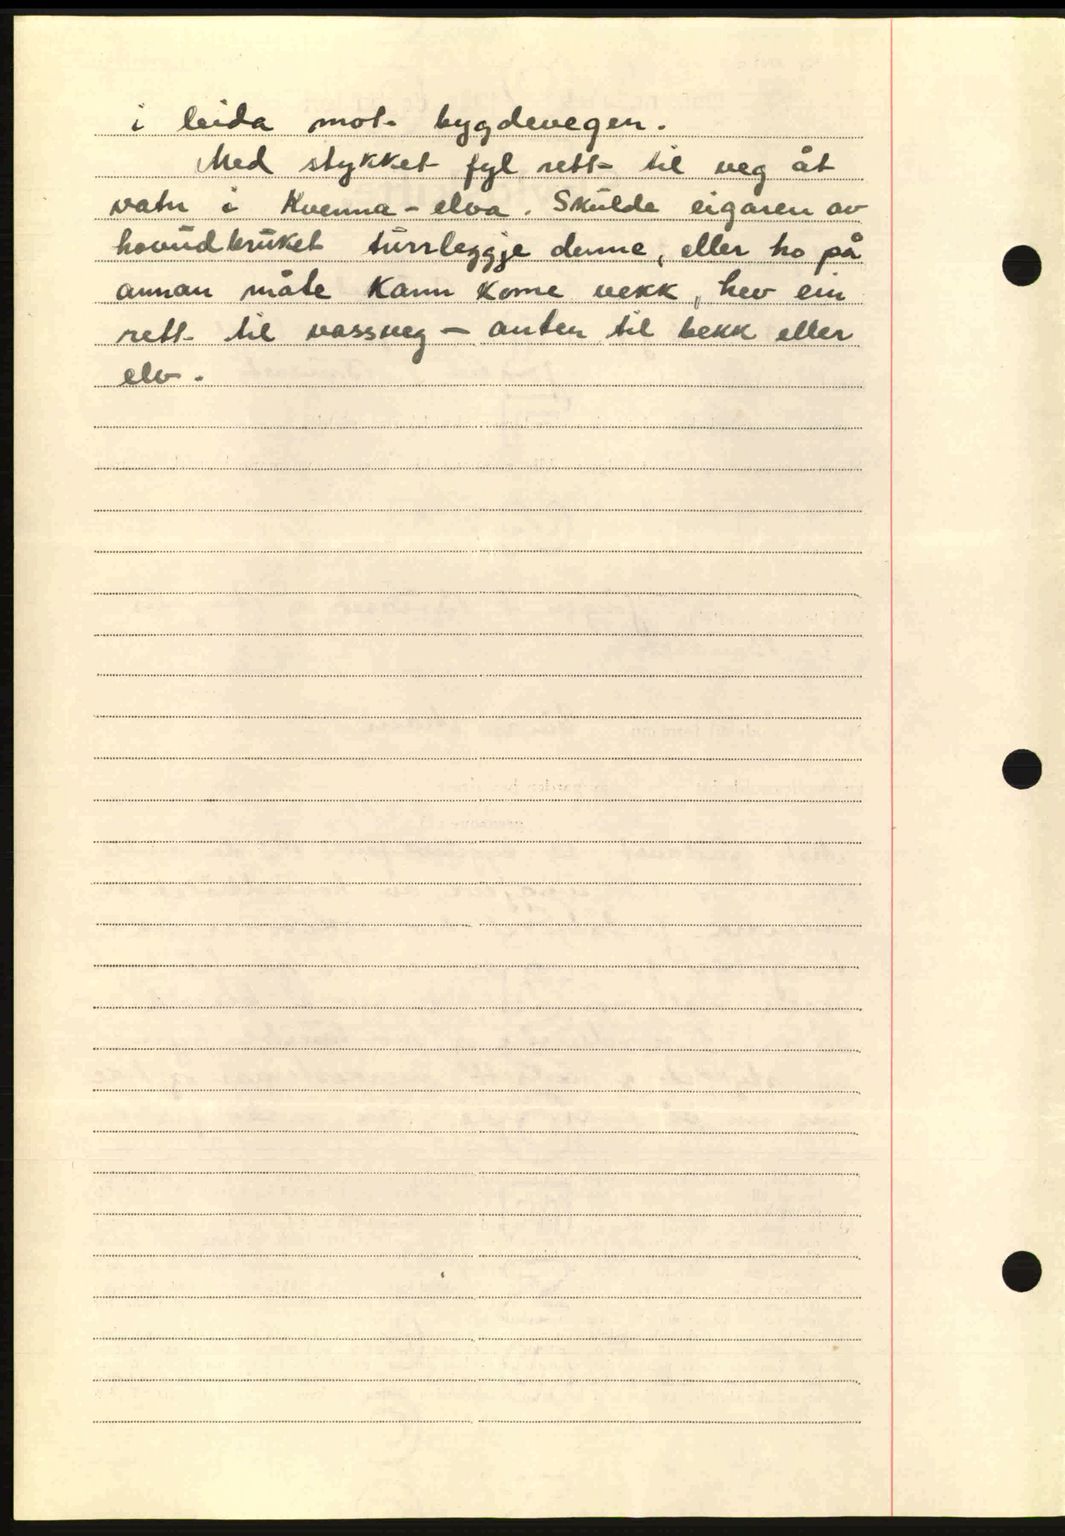 i leida mot bygdevegen.
Med stykket fyl rett til veg åt
vatn i Kvenna-elva. Skulde eigaren av
hovudbruket turrleggje denne, eller ho på
annan måte kann kome vekk, hev ein
rett til vassveg – anten til bekk eller
elv.